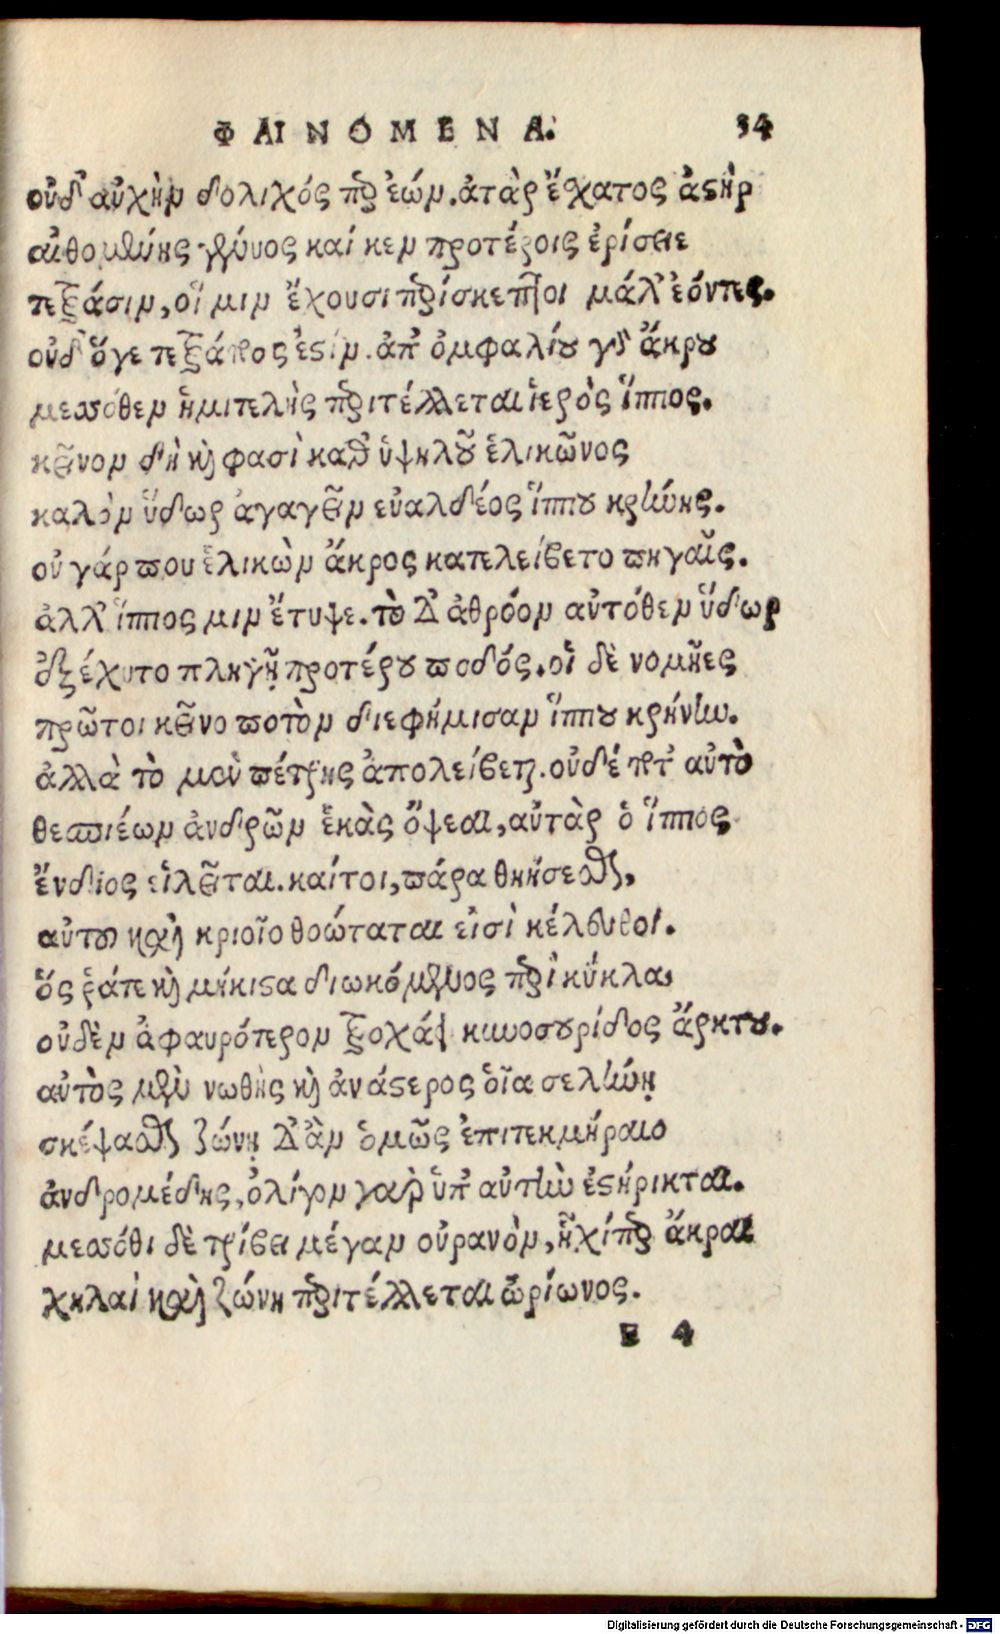 ΦΑΙΝΟΜΕΝΑ. 34
οὐδ' αὐχὴν δολιχός περ ἐών. ἀτὰρ ἔσχατος ἀστὴρ
αἰθομένης γένυος καί κεν προτέροις ἐρίσειε
τετράσιν, οἵ μιν ἔχουσι περίσκεπτοι μάλ' ἐόντες.
οὐδ' ὅγε τετράπος ἐστίν. ἀπ' ὀμφαλίου γὰρ ἄκρου
μεσσόθεν ἡμιτελὴς περιτέλλεται ἱερὸς ἵππος.
κεῖνον δὴ καὶ φασὶ καθ' ὑψηλοῦ ἑλικῶνος
καλὸν ὕδωρ ἀγαγεῖν εὐαλδέος ἵππου κρήνης.
οὐ γάρ που ἑλικὼν ἄκρος κατελείβετο πηγαῖς.
ἀλλ' ἵππος μιν ἔτυψε. τὸ δ' ἀθρόον αὐτόθεν ὕδωρ
ἐξέχυτο πληγῇ προτέρου ποδός. οἱ δὲ νομῆες
πρῶτοι κεῖνο ποτὸν διεφήμισαν ἵππου κρήνην.
ἀλλὰ τὸ μὲν πέτρης ἀπολείβεται. οὐδέ ποτ' αὐτὸ
θεσπιέων ἀνδρῶν ἑκὰς ὄψεαι, αὐτὰρ ὁ ἵππος
ἔνδιος εἱλεῖται. καίτοι, πάρα θηήσεσθαι,
αὐτοῦ καὶ κριοῖο θοώταται εἰσὶ κέλευθοι.
ὅς ῥάτε καὶ μήκιστα διωκόμενος περὶ κύκλα,
οὐδὲν ἀφαυρότερον τροχάει κυνοσουρίδος ἄρκτου.
αὐτὸς μὲν νωθὴς καὶ ἀνάστερος οἷα σελήνῃ
σκέψασθαι ζώνῃ δ' ἂν ὁμῶς ἐπιτεκμήραιο
ἀνδρομέδης, ὀλίγον γὰρ ὑπ' αὐτὴν ἐστήρικται.
μεσσόθι δὲ τρίβει μέγαν οὐρανὸν, ἧχί περ ἄκραι
χηλαὶ καὶ ζώνη περιτέλλεται ὠρίωνος.
E 4
Digitalisierung gefördert durch die Deutsche Forschungsgemeinschaft - DFG